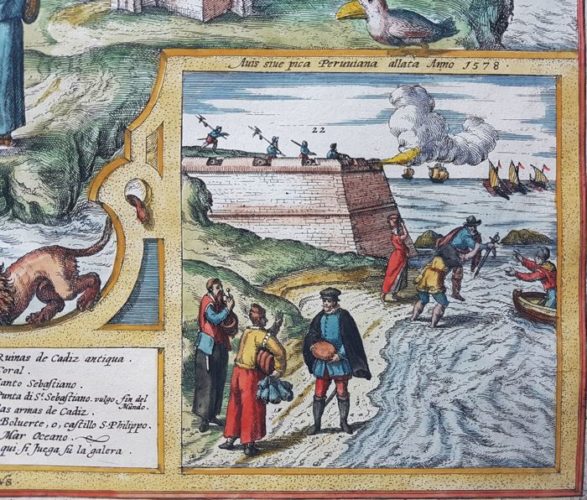 Auis siue pica Peruuiana allata Anno 1578.
22
Ruinas de Cadiz antiqua.
Coral.
Santo Sebastiano.
Punta di Sᵗ. Sebastiano. vulgo, fin del
Mundo.
las armas de Cadiz.
Boluerte, o, castillo S. Philippo.
Mar Oceano.
qui si Juega sù la galera.